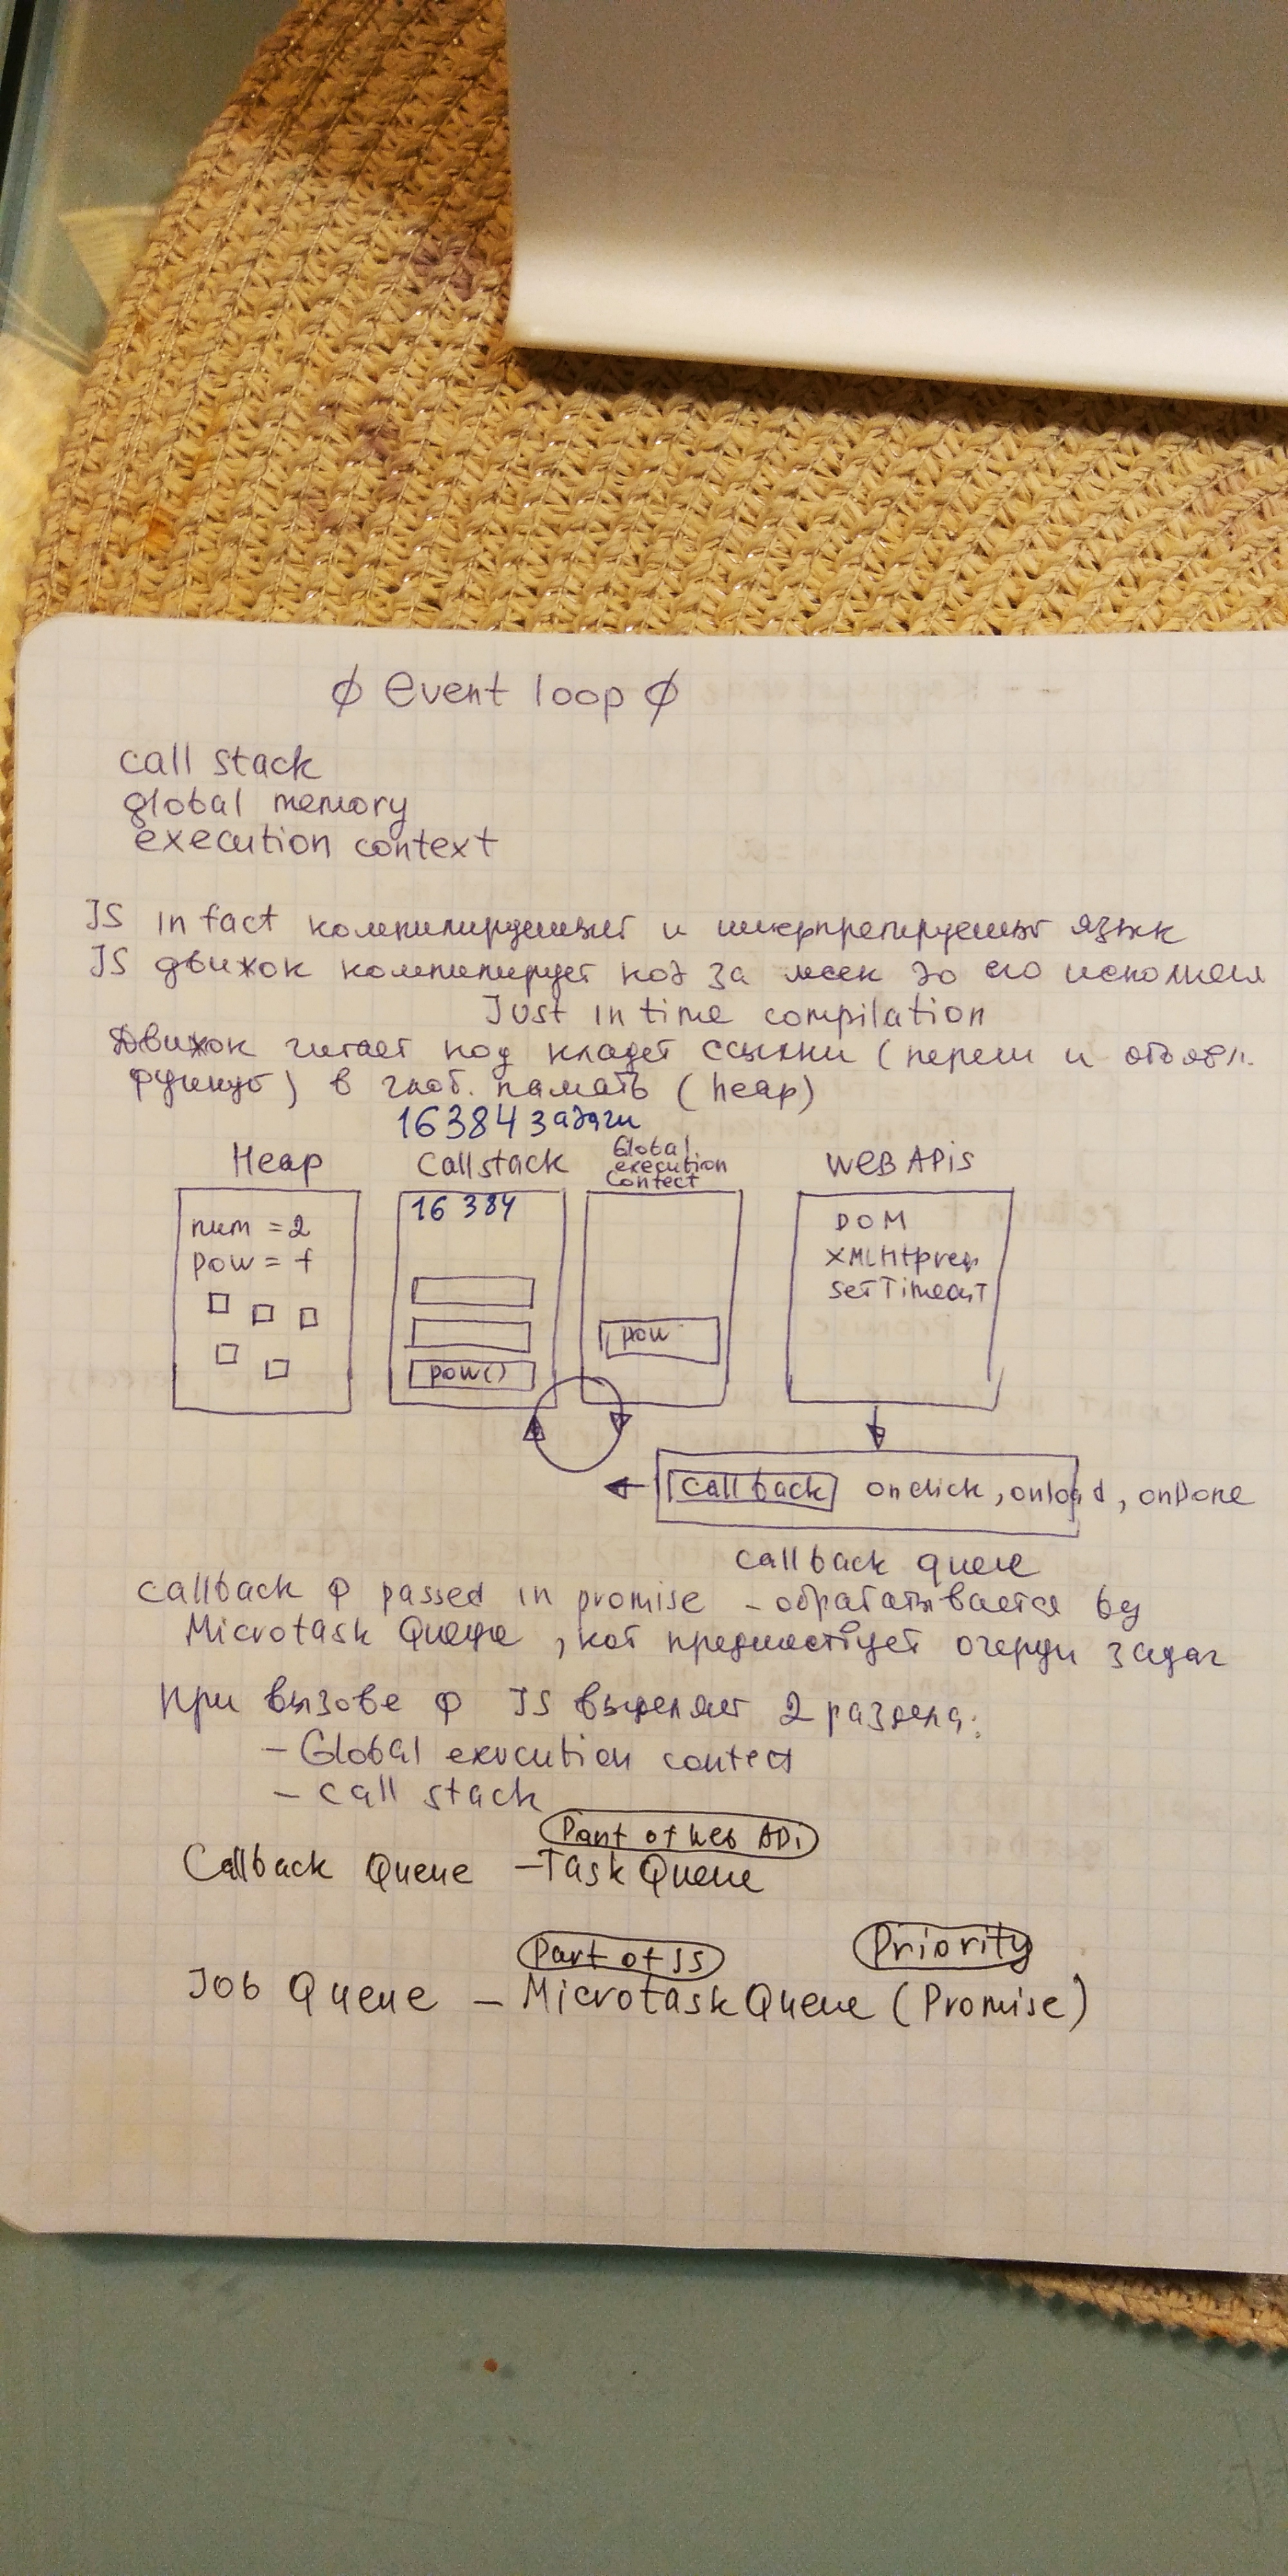 ∅ event loop ∅
call stack
global memory
execution context
JS in fact компилируемый и интерпретируемый язык
JS движок компилирует код за мсек до его исполнен
Just in time compilation
Движок читает код кладет ссылки (перем и объявл.
функций) в глоб. память (heap)
16384 задачи
Heap Callstack Global execution contect WEB APIs
num = 2
pow = f
16 384
pow()
pow
DOM
XMLHtpreq
setTimeout
callback onclick, onload, onDone
callback queue
callback ф passed in promise - обрабатывается by
Microtask Queue, кот предшествует очереди задач
При вызове ф JS выделяет 2 раздела:
- Global exucution contect
- call stack
Part of Web API
Callback Queue - Task Queue
Part of JS Priority
Job Queue - Microtask Queue (Promise)